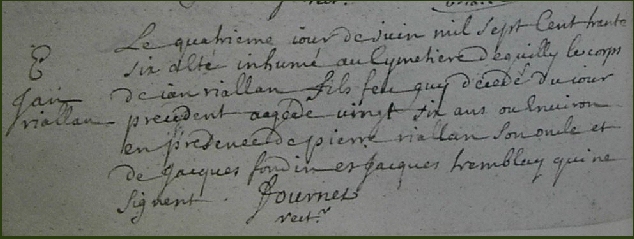 Le quatrieme iour de juin mil sept Cent trante
six a Eté inhumé au Cymetiere dequilly le corps
de ian riallan fils feu guy décédé du iour
precedent aagé de vingt six ans ou Environ
en presence de pierre riallan son oncle et
de Jacques fondin et Jacques tremblay qui ne
signent . Journet
rect.r
E
Jan
riallan